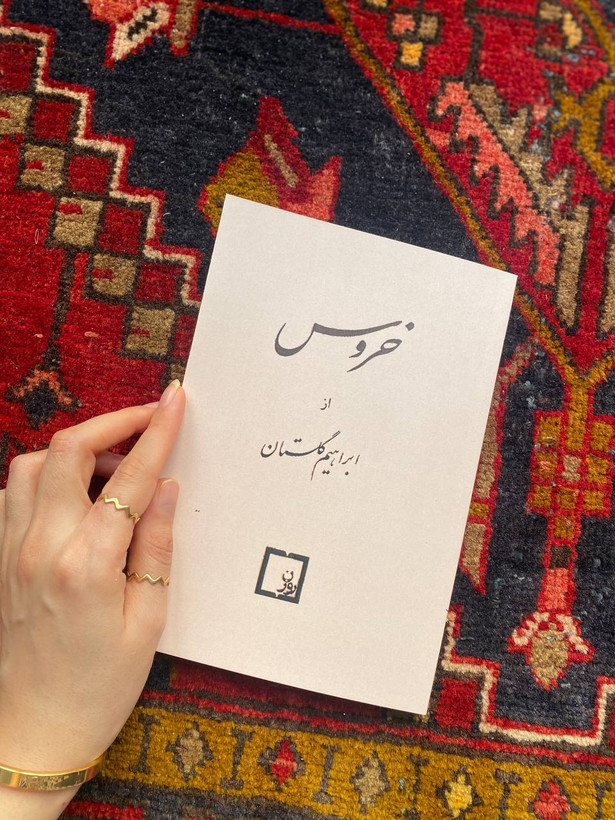 خروس
از
ابراهیم گلستان
روزن